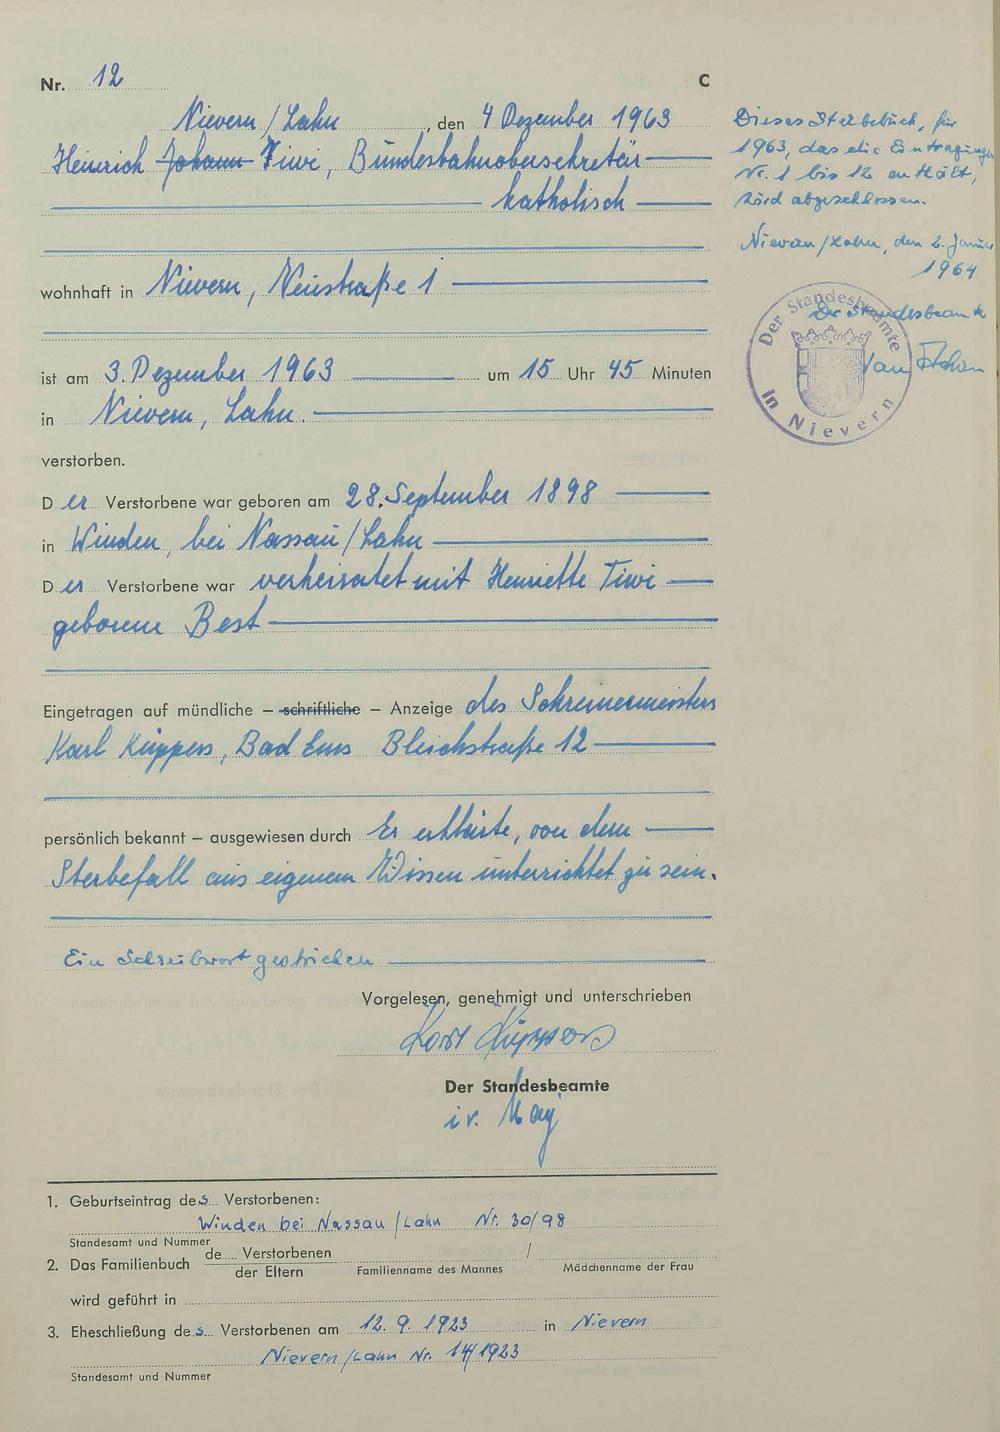 Nr. 12
C
Nievern/Lahn, den 4 Dezember 1963
Heinrich Johann Tiwi, Bundesbahnobersekretär
katholisch
wohnhaft in Nievern, Neustraße 1
ist am 3. Dezember 1963 um 15 Uhr 45 Minuten
in Nievern, Lahn.
verstorben.
Der Verstorbene war geboren am 28. September 1898
in Winden, bei Nassau/Lahn
Der Verstorbene war verheiratet mit Henriette Tiwi
geborene Best
Eingetragen auf mündliche – schriftliche – Anzeige des Schreinermeisters
Karl Küppers, Bad Ems Bleichstraße 12
persönlich bekannt – ausgewiesen durch Er erklärte, von dem
Sterbefall aus eigenem Wissen unterrichtet zu sein.
Ein Schreibwort gestrichen
Vorgelesen, genehmigt und unterschrieben
Karl Küppers
Der Standesbeamte
i.v. May
1. Geburtseintrag des Verstorbenen:
Winden bei Nassau/Lahn Nr. 30/98
Standesamt und Nummer
2. Das Familienbuch de Verstorbenen / der Eltern
Familienname des Mannes
Mädchenname der Frau
wird geführt in
3. Eheschließung des Verstorbenen am 12.9.1923 in Nievern
Nievern/Lahn Nr. 14/1923
Standesamt und Nummer
Dieses Sterbebuch, für
1963, das die Eintragungen
Nr. 1 bis 12 enthält,
wird abgeschlossen.
Nievern/Lahn, den 2. Januar
1964
Der Standesbeamte
Der Standesbeamte
in Nievern